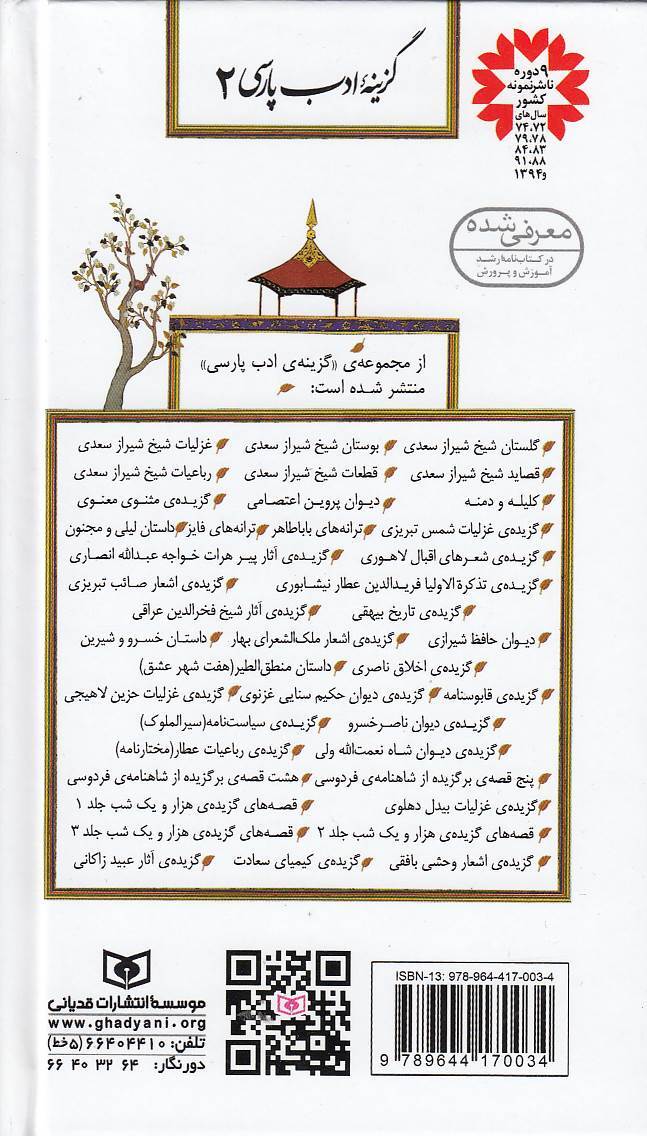 گزینهٔ ادب پارسی ۲
۹ دوره
ناشر نمونه
کشور
سال‌های
۷۴،۷۲
۷۹،۷۸
۸۴،۸۳
۹۱،۸۸
و ۱۳۹۴
معرفی شده
در کتاب‌نامهٔ رشد
آموزش و پرورش
از مجموعه‌ی «گزینه‌ی ادب پارسی»
منتشر شده است:
گلستان شیخ شیراز سعدی بوستان شیخ شیراز سعدی غزلیات شیخ شیراز سعدی
قصاید شیخ شیراز سعدی قطعات شیخ شیراز سعدی رباعیات شیخ شیراز سعدی
کلیله و دمنه دیوان پروین اعتصامی گزیده‌ی مثنوی معنوی
گزیده‌ی غزلیات شمس تبریزی ترانه‌های باباطاهر ترانه‌های فایز داستان لیلی و مجنون
گزیده‌ی شعرهای اقبال لاهوری گزیده‌ی آثار پیر هرات خواجه عبدالله انصاری
گزیده‌ی تذکرة الاولیا فریدالدین عطار نیشابوری گزیده‌ی اشعار صائب تبریزی
گزیده‌ی تاریخ بیهقی گزیده‌ی آثار شیخ فخرالدین عراقی
دیوان حافظ شیرازی گزیده‌ی اشعار ملک‌الشعرای بهار داستان خسرو و شیرین
گزیده‌ی اخلاق ناصری داستان منطق‌الطیر(هفت شهر عشق)
گزیده‌ی قابوسنامه گزیده‌ی دیوان حکیم سنایی غزنوی گزیده‌ی غزلیات حزین لاهیجی
گزیده‌ی دیوان ناصرخسرو گزیده‌ی سیاست‌نامه(سیرالملوک)
گزیده‌ی دیوان شاه نعمت‌الله ولی گزیده‌ی رباعیات عطار(مختارنامه)
پنج قصه‌ی برگزیده از شاهنامه‌ی فردوسی هشت قصه‌ی برگزیده از شاهنامه‌ی فردوسی
گزیده‌ی غزلیات بیدل دهلوی قصه‌های گزیده‌ی هزار و یک شب جلد ۱
قصه‌های گزیده‌ی هزار و یک شب جلد ۲ قصه‌های گزیده‌ی هزار و یک شب جلد ۳
گزیده‌ی اشعار وحشی بافقی گزیده‌ی کیمیای سعادت گزیده‌ی آثار عبید زاکانی
موسسهٔ انتشارات قدیانی
www.ghadyani.org
تلفن: ۶۶۴۰۴۴۱۰ (۵ خط)
دورنگار: ۶۶ ۴۰ ۳۲ ۶۴
ISBN-13: 978-964-417-003-4
9 789644 170034